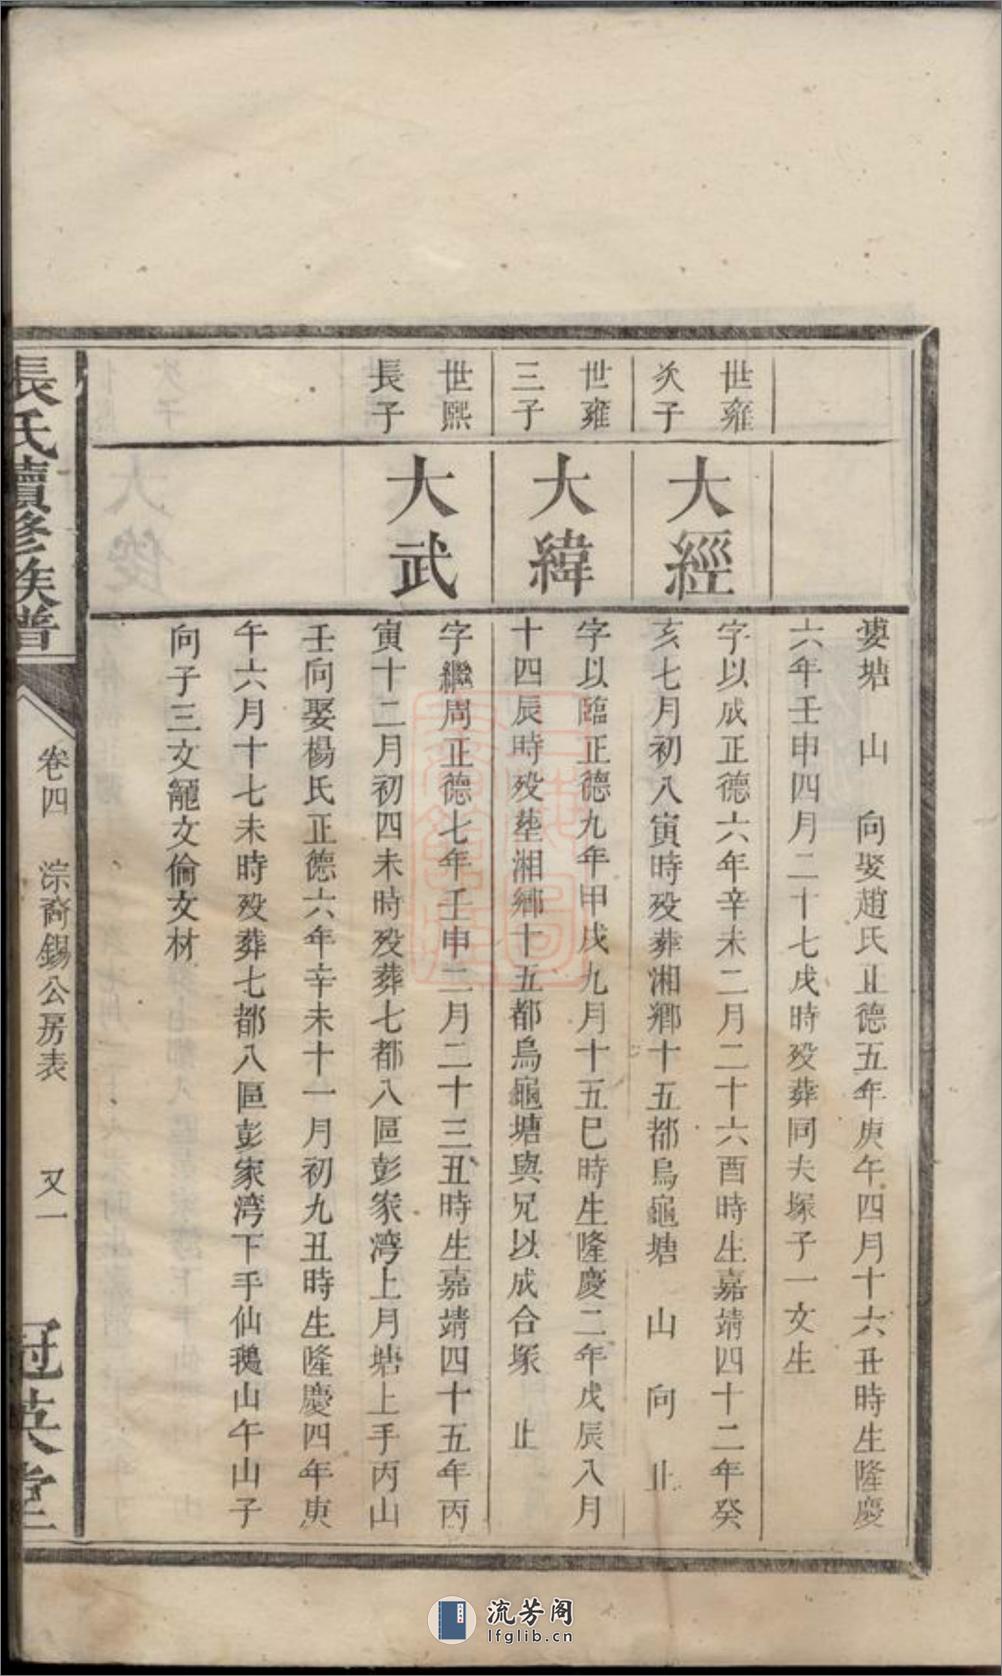 塘　山　向娶趙氏正德五年庚午四月十六丑時生隆慶
六年壬申四月二十七戌時殁葬同夫塚子一文生
世雍
次子
大經
字以成正德六年辛未二月二十六酉時生嘉靖四十二年癸
亥七月初八寅時殁葬湘鄉十五都烏龜塘　山　向　止
世雍
三子
大緯
字以臨正德九年甲戌九月十五巳時生隆慶二年戊辰八月
十四辰時殁塟湘鄉十五都烏龜塘與兄以成合塚　止
世熙
長子
大武
字繼周正德七年壬申二月二十三丑時生嘉靖四十五年丙
寅十二月初四未時殁葬七都八區彭家湾上月塘上手丙山
壬向娶楊氏正德六年辛未十一月初九丑時生隆慶四年庚
午六月十七未時殁葬七都八區彭家湾下手仙鵝山午山子
向子三文寵文倫文材
張氏續修族譜
卷四　淙裔錫公房表　又一
冠英堂
流芳阁
lfglib.cn